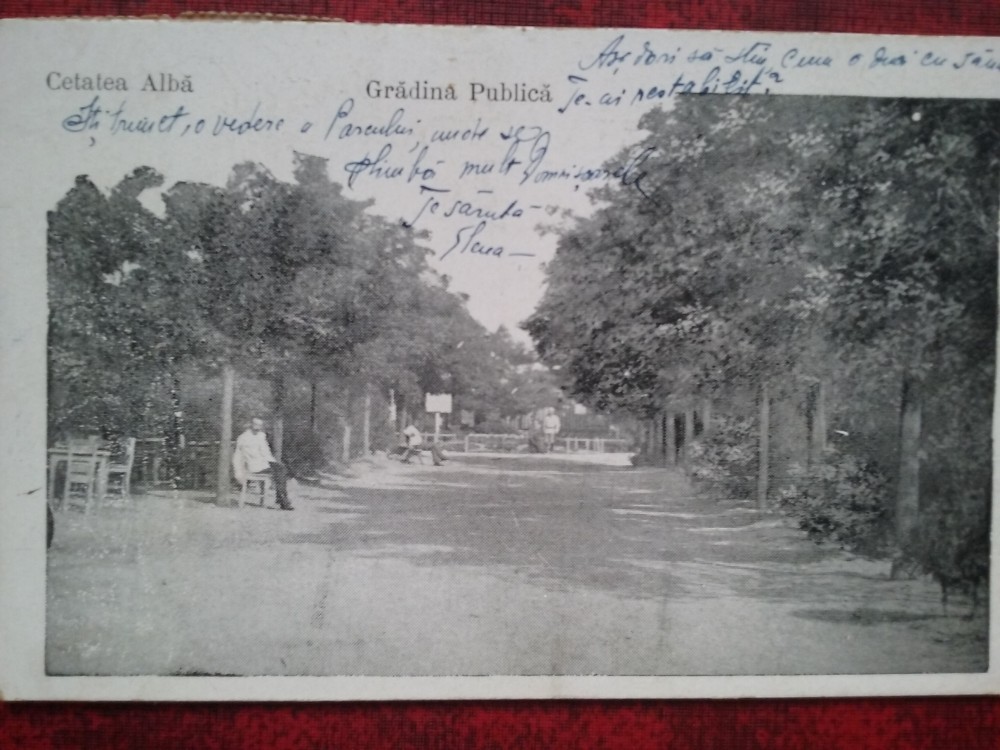 Aș dori să știu, cum o duci cu săn
Te-ai restabilit?
Cetatea Albă
Grădina Publică
Iți trimet, o vedere a Parcului, unde se
plimbă mult Domnișoarele
Te sărută
Elena